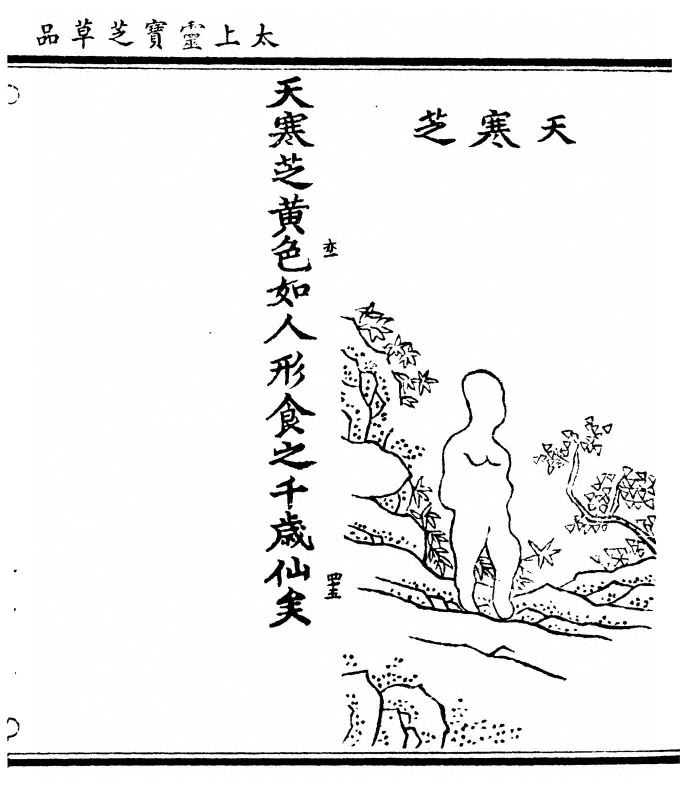 太上靈寶芝草品
天寒芝
天寒芝黄色如人形食之千歲仙矣